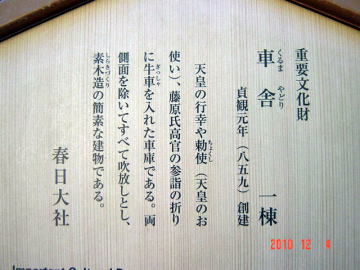 重要文化財
車舎 一棟
くるま やどり
貞観元年(八五九)創建
天皇の行幸や勅使(天皇のお
ちょくし
使い)、藤原氏高官の参詣の折り
に牛車を入れた車庫である。両
ぎっしゃ
側面を除いてすべて吹放しとし、
素木造の簡素な建物である。
しらきづくり
春日大社
Important Cultural P
2010 12 4